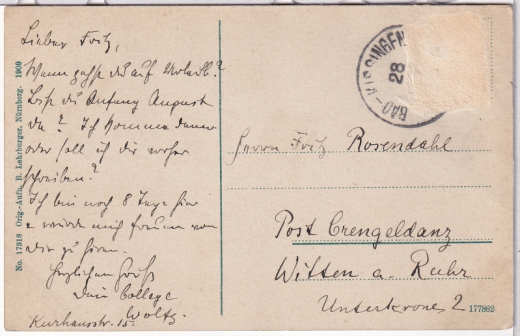 Lieber Fritz,
Wann gehst du auf Urlaub?
Bist du Anfang August
da? Ich komme dann
oder soll ich dir vorher
schreiben?
Ich bin noch 8 Tage hier
u würde mich freuen von
dir zu hören.
Herzlichen Gruß
Dein College
Kurhausstr. 15.
No. 17318 Orig.-Aufn. B. Lehrburger, Nürnberg. 1909
BAD-KISSINGEN
28
Herrn Fritz Rosendahl
Post Crengeldanz
Witten a. Ruhr
Unterkrone 2
177862